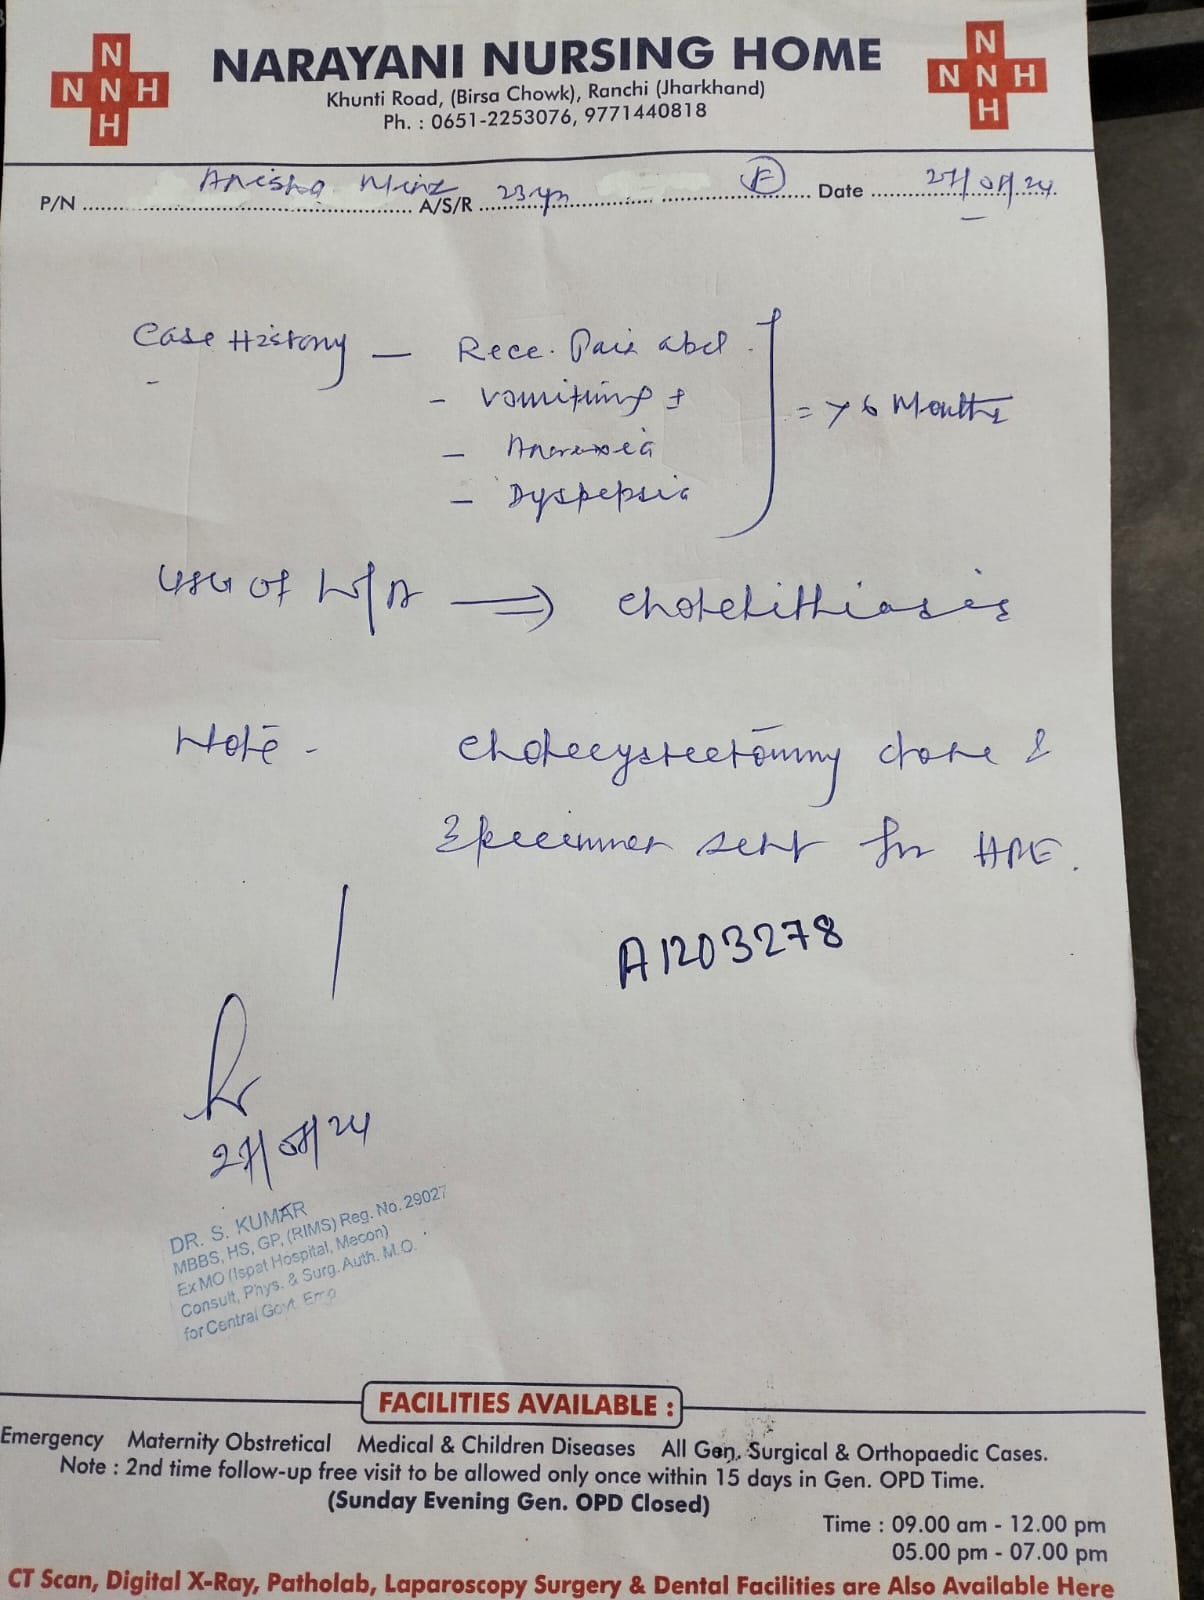 N
N N H
H
NARAYANI NURSING HOME
Khunti Road, (Birsa Chowk), Ranchi (Jharkhand)
Ph. : 0651-2253076, 9771440818
N
N N H
H
P/N Anisha Minz A/S/R 23 yr F Date 27/08/24
Case History — Rece. Pain abd.
- Vomiting ±
- Anorexia
- Dyspepsia
= > 6 Months
USG of W/A ⇒ cholelithiasis
Note - cholecystectomy done &
Specimen sent for HPE.
A1203278
27/08/24
DR. S. KUMAR
MBBS, HS, GP, (RIMS) Reg. No. 29027
Ex MO (Ispat Hospital, Mecon)
Consult, Phys. & Surg. Auth. M.O.
for Central Govt. Emp
FACILITIES AVAILABLE :
Emergency Maternity Obstretical Medical & Children Diseases All Gen. Surgical & Orthopaedic Cases.
Note : 2nd time follow-up free visit to be allowed only once within 15 days in Gen. OPD Time.
(Sunday Evening Gen. OPD Closed)
Time : 09.00 am - 12.00 pm
05.00 pm - 07.00 pm
CT Scan, Digital X-Ray, Patholab, Laparoscopy Surgery & Dental Facilities are Also Available Here